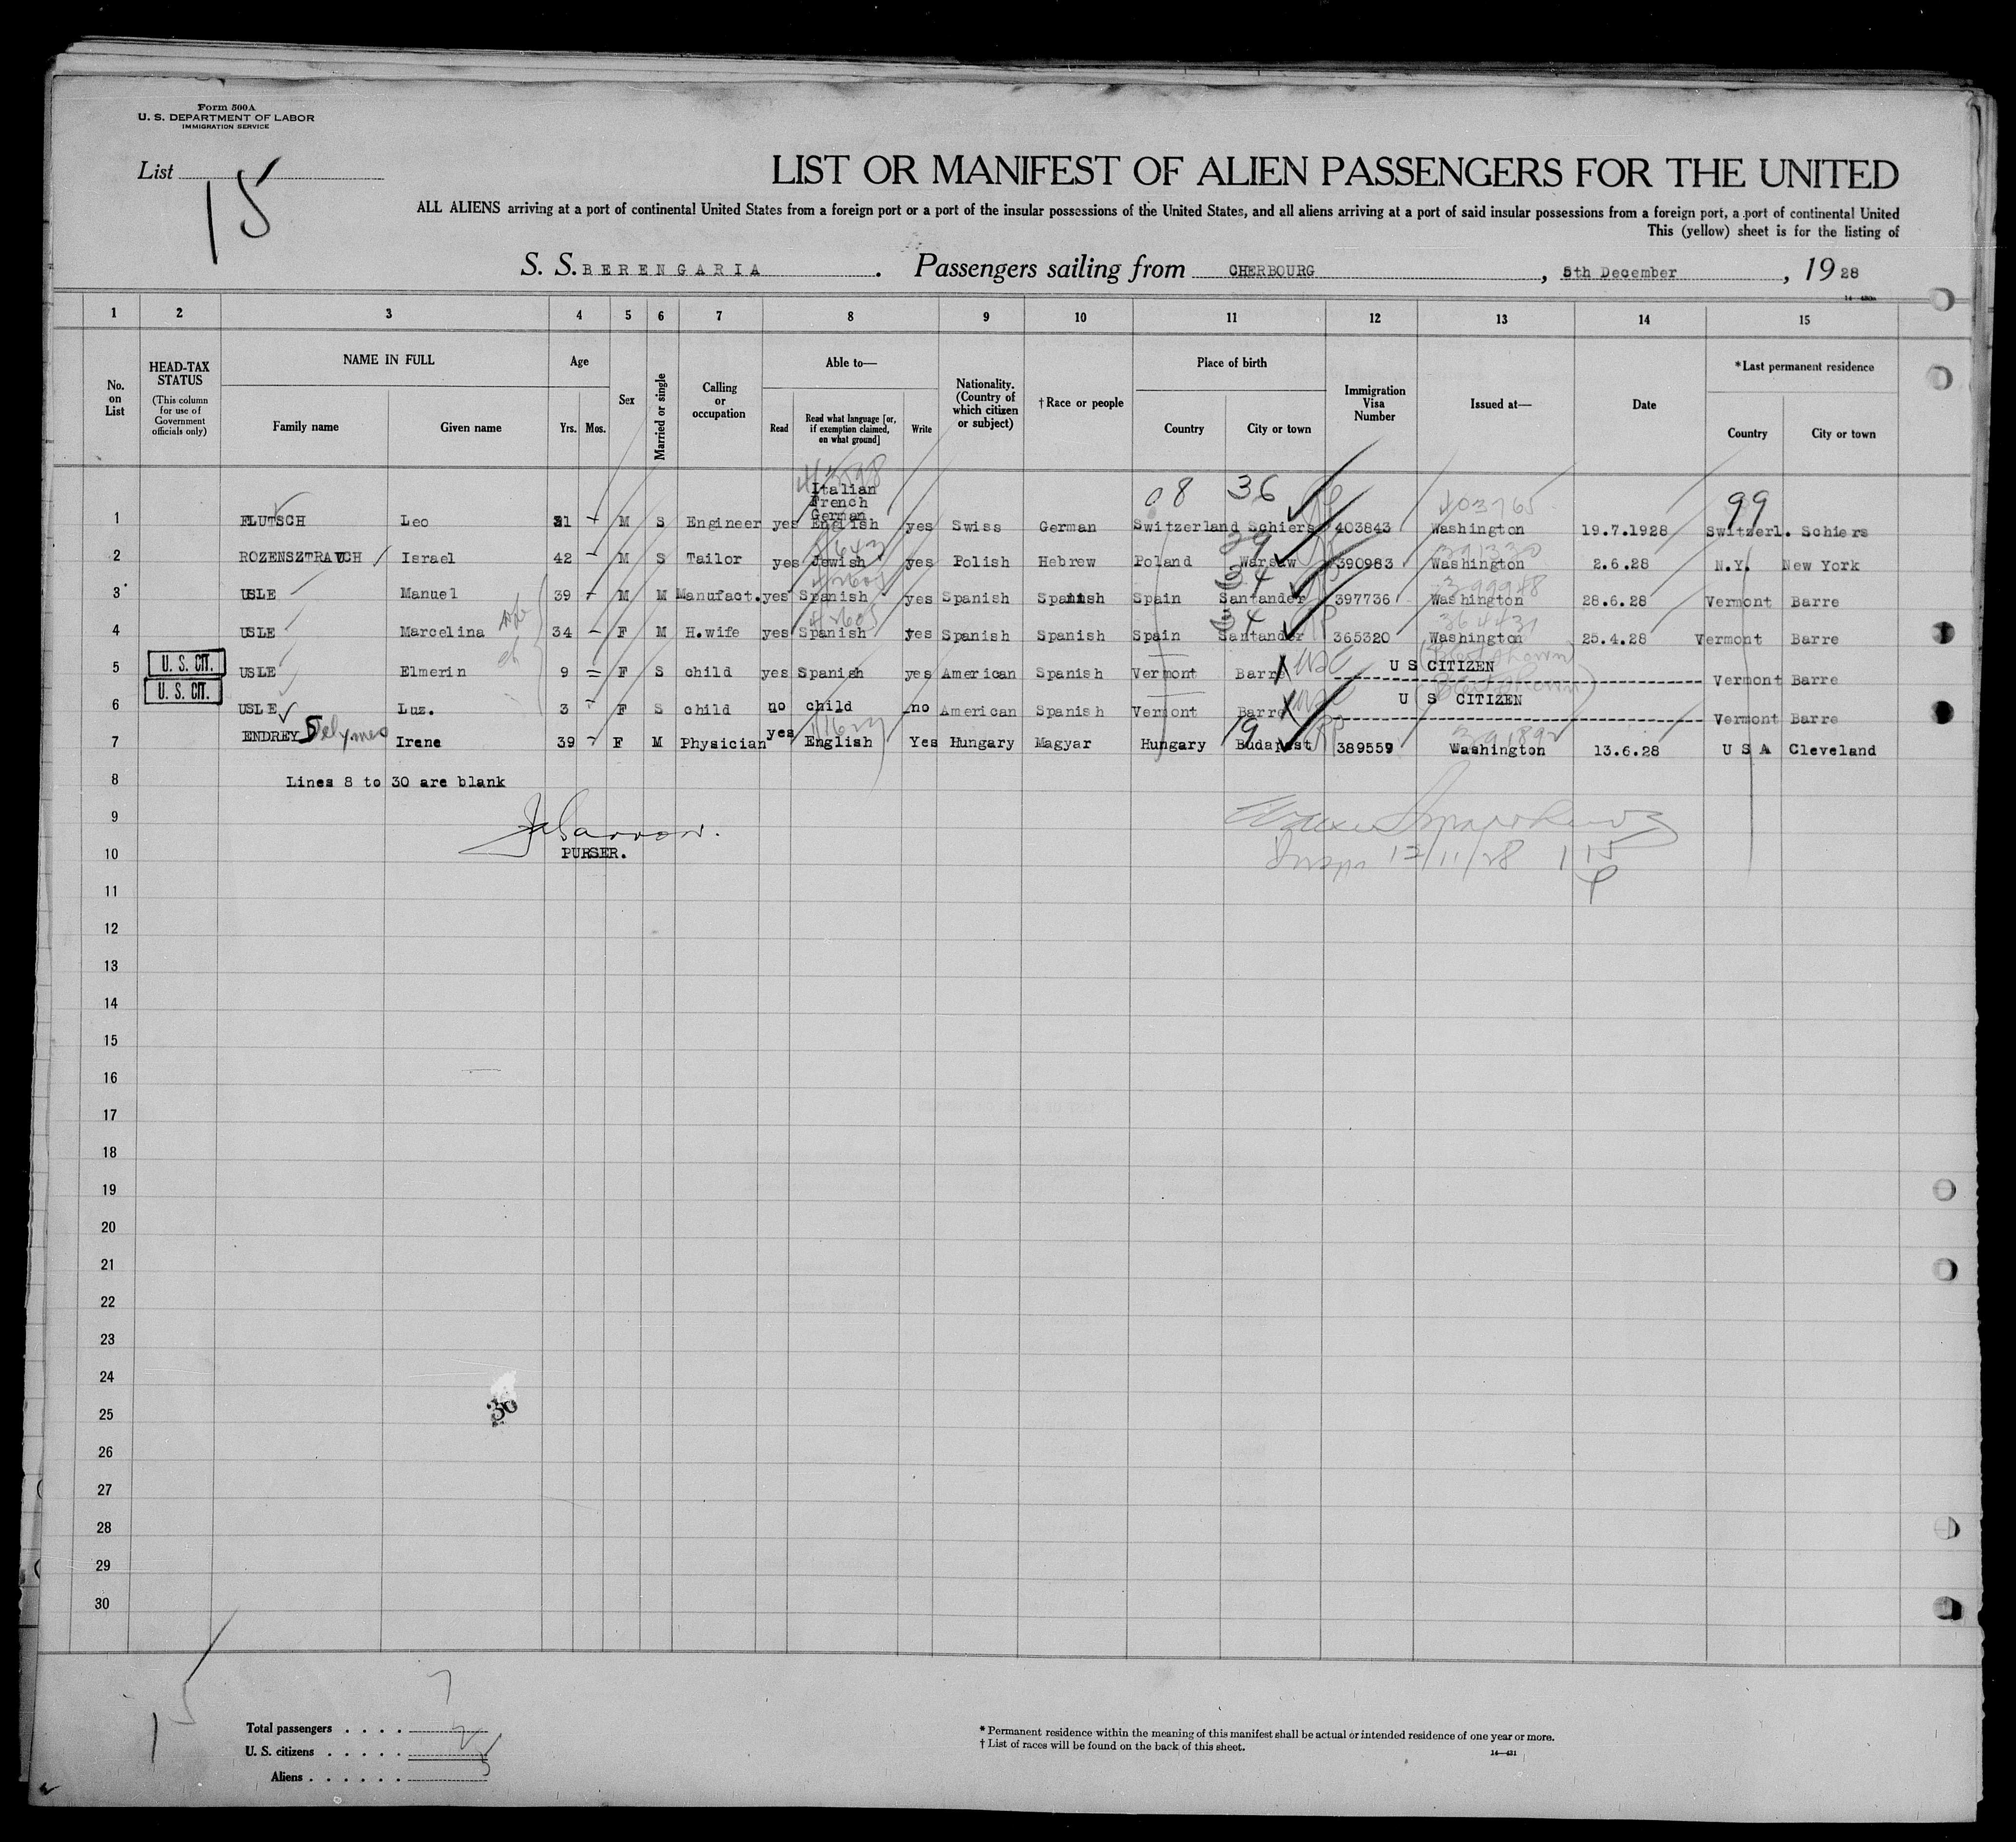 Form 500A
U. S. DEPARTMENT OF LABOR
IMMIGRATION SERVICE
List 15
LIST OR MANIFEST OF ALIEN PASSENGERS FOR THE UNITED
ALL ALIENS arriving at a port of continental United States from a foreign port or a port of the insular possessions of the United States, and all aliens arriving at a port of said insular possessions from a foreign port, a port of continental United
This (yellow) sheet is for the listing of
S. S. BERENGARIA. Passengers sailing from CHERBOURG, 5th December, 1928
1 2 3 4 5 6 7 8 9 10 11 12 13 14 15
No. on List
HEAD-TAX STATUS (This column for use of Government officials only)
NAME IN FULL Family name Given name
Age Yrs. Mos.
Sex
Married or single
Calling or occupation
Able to— Read Read what language [or, if exemption claimed, on what ground] Write
Nationality. (Country of which citizen or subject)
†Race or people
Place of birth Country City or town
Immigration Visa Number
Issued at—
Date
*Last permanent residence Country City or town
08 36 99
1 FLUTSCH Leo 31 M S Engineer yes Italian French German English yes Swiss German Switzerland Schiers 403843 Washington 19.7.1928 Switzerl. Schiers
2 ROZENSZTRAUCH Israel 42 M S Tailor yes Jewish yes Polish Hebrew Poland Warsaw 390983 Washington 2.6.28 N.Y. New York
3 USLE Manuel 39 M M Manufact. yes Spanish yes Spanish Spanish Spain Santander 397736 Washington 28.6.28 Vermont Barre
4 USLE Marcelina 34 F M H.wife yes Spanish yes Spanish Spanish Spain Santander 365320 Washington 25.4.28 Vermont Barre
5 U. S. CIT. USLE Elmerin 9 F S child yes Spanish yes American Spanish Vermont Barre U S CITIZEN Vermont Barre
6 U. S. CIT. USLE Luz. 3 F S child no child no American Spanish Vermont Barre U S CITIZEN Vermont Barre
7 ENDREY Irene 39 F M Physician yes English Yes Hungary Magyar Hungary Budapest 389559 Washington 13.6.28 U S A Cleveland
8 Lines 8 to 30 are blank
9
10 PURSER. 12/11/28
11
12
13
14
15
16
17
18
19
20
21
22
23
24
25
26
27
28
29
30
Total passengers . . . . 7
U. S. citizens . . . . . 2
Aliens . . . . . . 5
15
* Permanent residence within the meaning of this manifest shall be actual or intended residence of one year or more.
† List of races will be found on the back of this sheet.
14—431